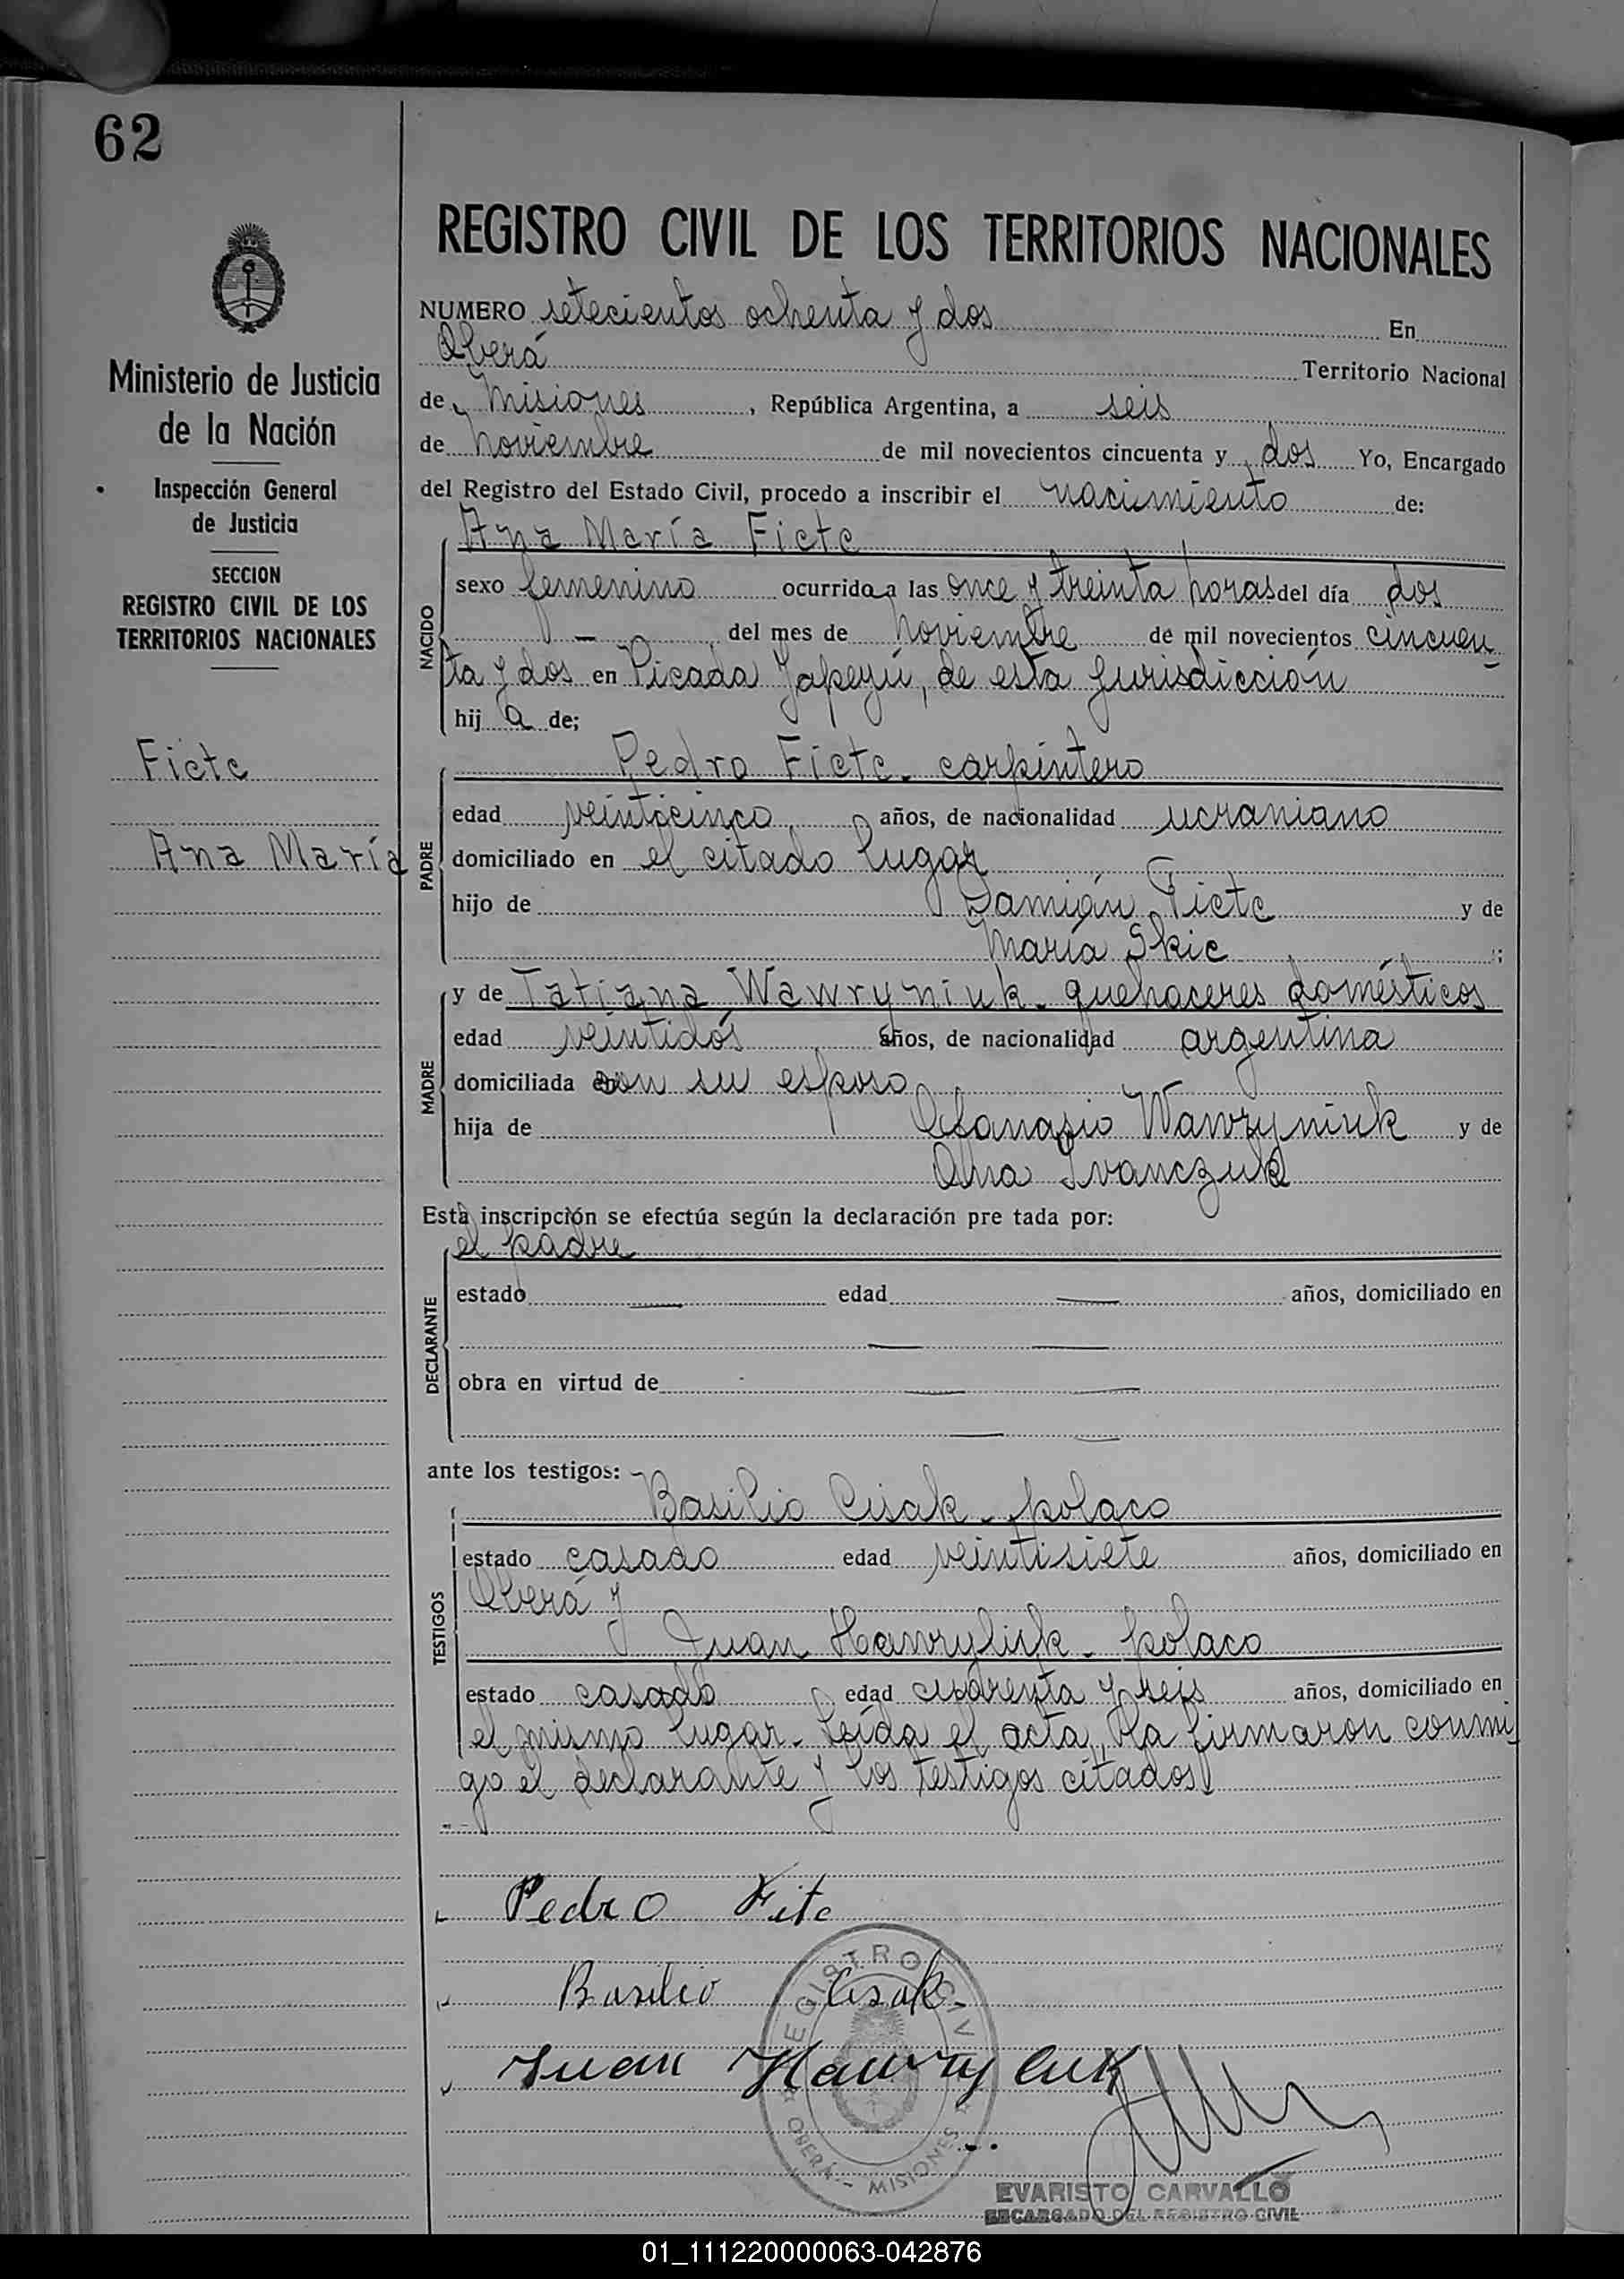 62
REGISTRO CIVIL DE LOS TERRITORIOS NACIONALES
Ministerio de Justicia
de la Nación
Inspección General
de Justicia
SECCION
REGISTRO CIVIL DE LOS
TERRITORIOS NACIONALES
Fiete
Ana María
NUMERO setecientos ochenta y dos En
Oberá Territorio Nacional
de Misiones, República Argentina, a seis
de noviembre de mil novecientos cincuenta y dos Yo, Encargado
del Registro del Estado Civil, procedo a inscribir el nacimiento de:
NACIDO
Ana María Fiete
sexo femenino ocurrido a las once y treinta horas del día dos
— del mes de noviembre de mil novecientos cincuen
ta y dos en Picada Yapeyú, de esta jurisdicción
hij a de;
PADRE
Pedro Fiete - carpintero
edad veinticinco años, de nacionalidad ucraniano
domiciliado en el citado lugar
hijo de Damián Fiete y de
María Skic ;
MADRE
y de Tatiana Wawryniuk - quehaceres domésticos
edad veintidós años, de nacionalidad argentina
domiciliada con su esposo
hija de Afanasio Wawryniuk y de
Ana Ivanczuk
Esta inscripción se efectúa según la declaración pre tada por:
DECLARANTE
el padre
estado — edad — años, domiciliado en
— —
obra en virtud de — —
— —
ante los testigos:
TESTIGOS
Basilio Cisak - polaco
estado casado edad veintisiete años, domiciliado en
Oberá y
Juan Hawryliuk - polaco
estado casado edad cuarenta y seis años, domiciliado en
el mismo lugar - Leída el acta, la firmaron conmi
go el declarante y los testigos citados
Pedro Fite
Basilio Cisak
Juan Hawryluk
REGISTRO CIVIL
OBERÁ - MISIONES
EVARISTO CARVALLO
ENCARGADO DEL REGISTRO CIVIL
01_111220000063-042876